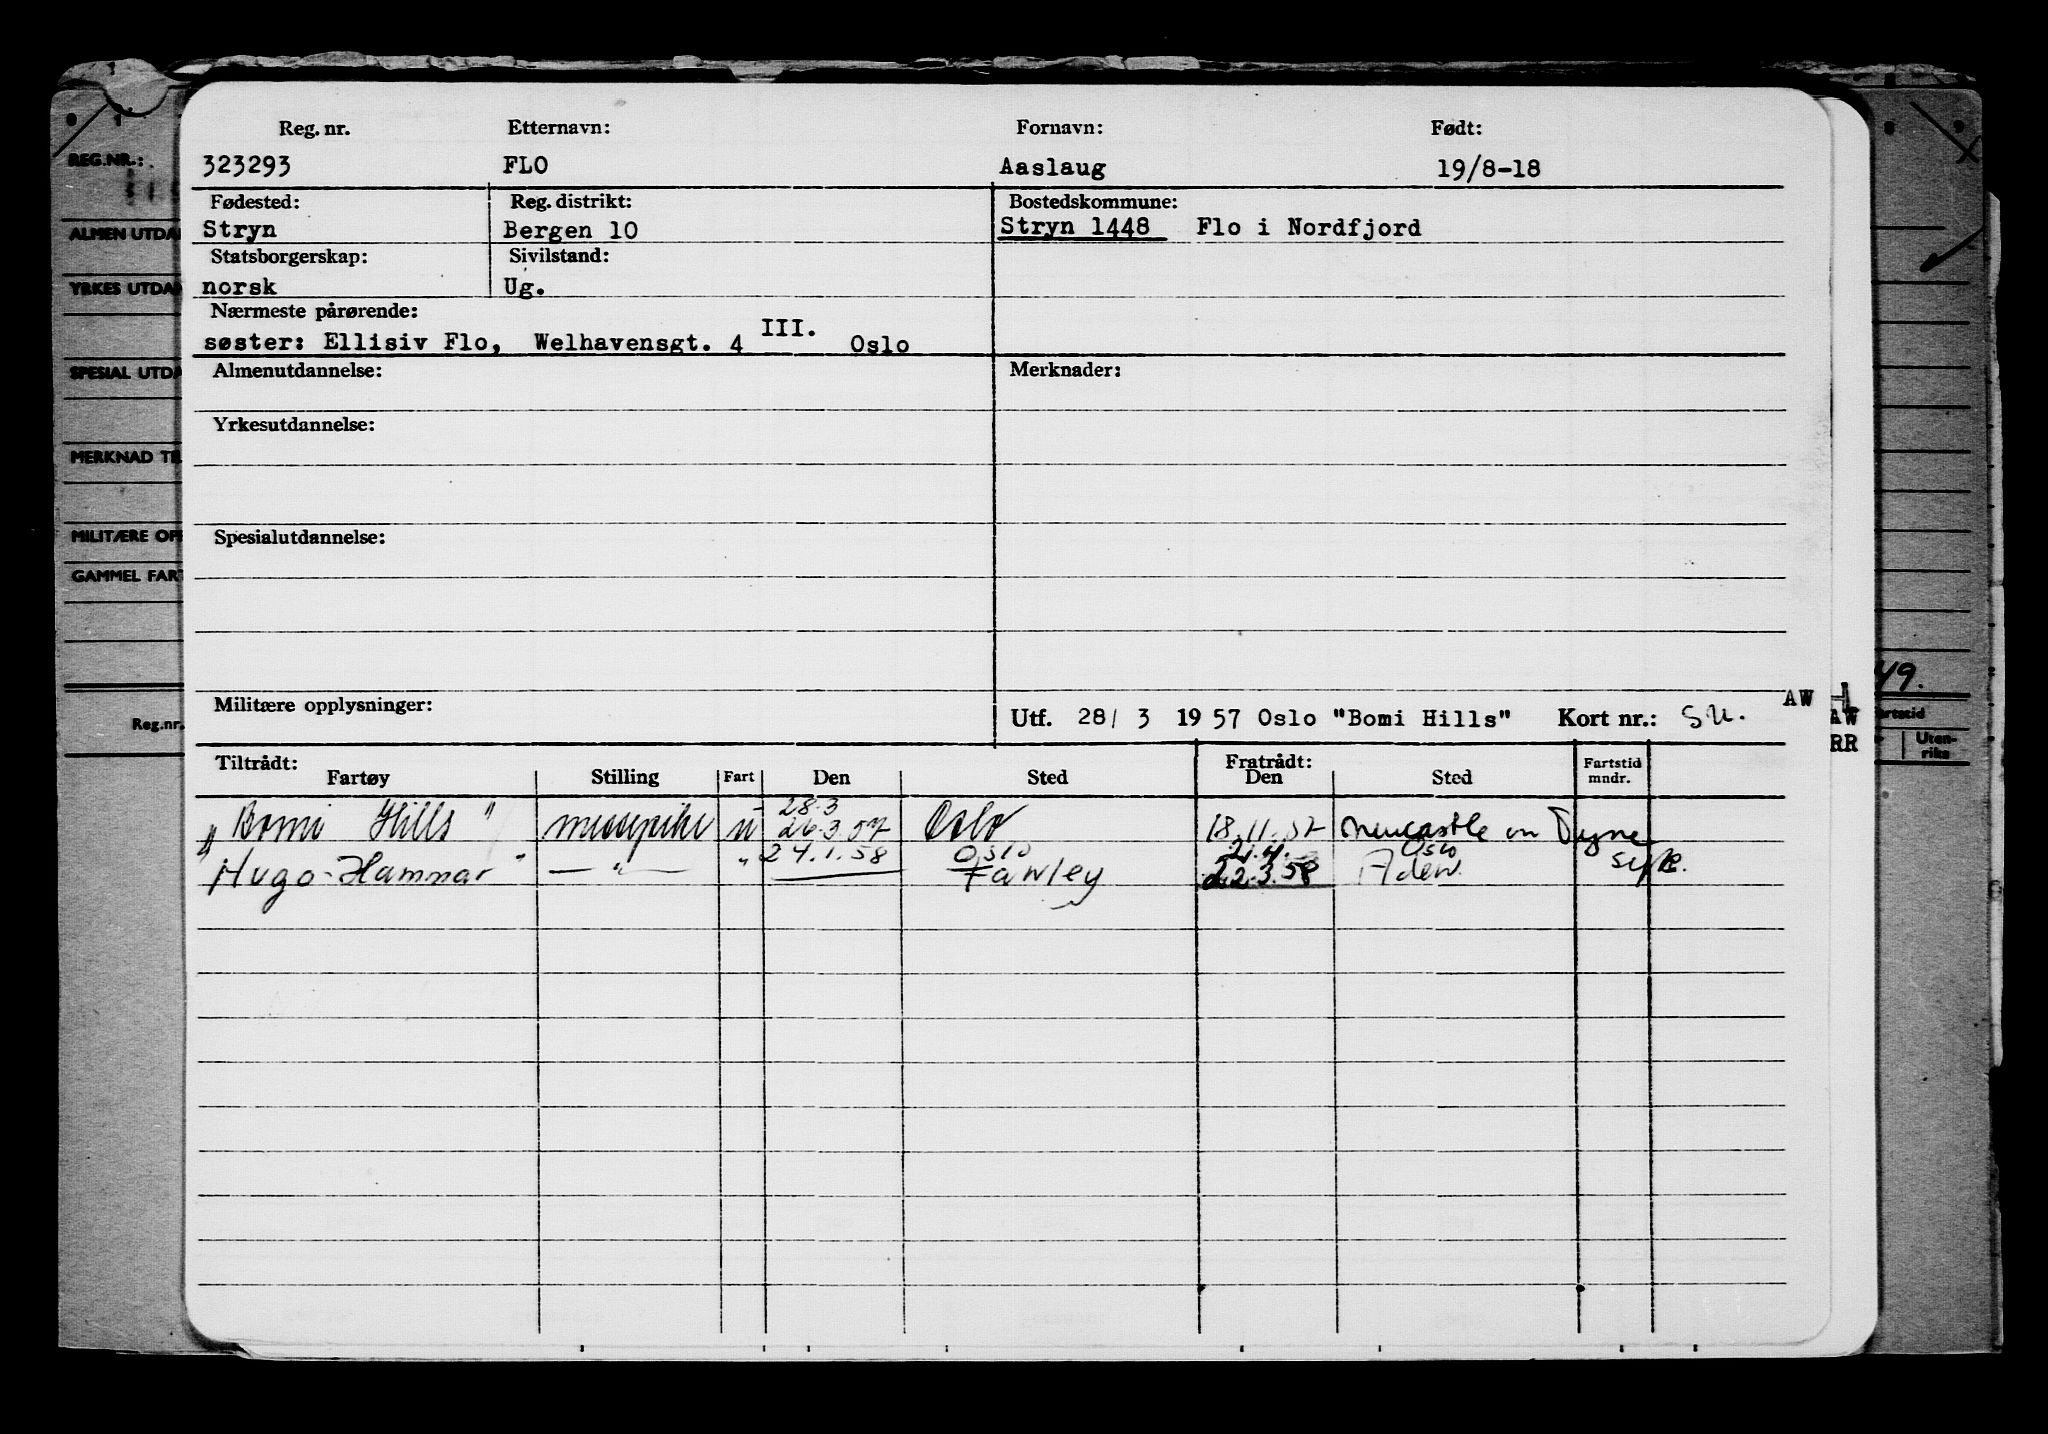 Reg. nr. Etternavn: Fornavn: Født:
323293 FLO Aaslaug 19/8-18
Fødested: Reg. distrikt: Bostedskommune:
Stryn Bergen 10 Stryn 1448 Flo i Nordfjord
Statsborgerskap: Sivilstand:
norsk Ug.
Nærmeste pårørende:
søster: Ellisiv Flo, Welhavensgt. 4 III. Oslo
Almenutdannelse: Merknader:
Yrkesutdannelse:
Spesialutdannelse:
Militære opplysninger: Utf. 28/ 3 1957 Oslo "Bomi Hills" Kort nr.: S.U.
AW
Tiltrådt: Fratrådt:
Fartøy Stilling Fart Den Sted Den Sted Fartstid mndr.
28.3
"Bomi Hills" messepike u 26.3.57 Oslo 18.11.57 Newcastle on Tyne
24.1.58 Oslo 21.4. Oslo
"Hugo-Hammar" — " — " Fawley 22.3.58 Aden syk.
REG.NR.:
ALMEN UTDA
YRKES UTDA
SPESIAL UTDA
MERKNAD TI
MILITÆRE OP
GAMMEL FART
Reg.nr.
49.
AW
RR
artstid
Uten-
riks